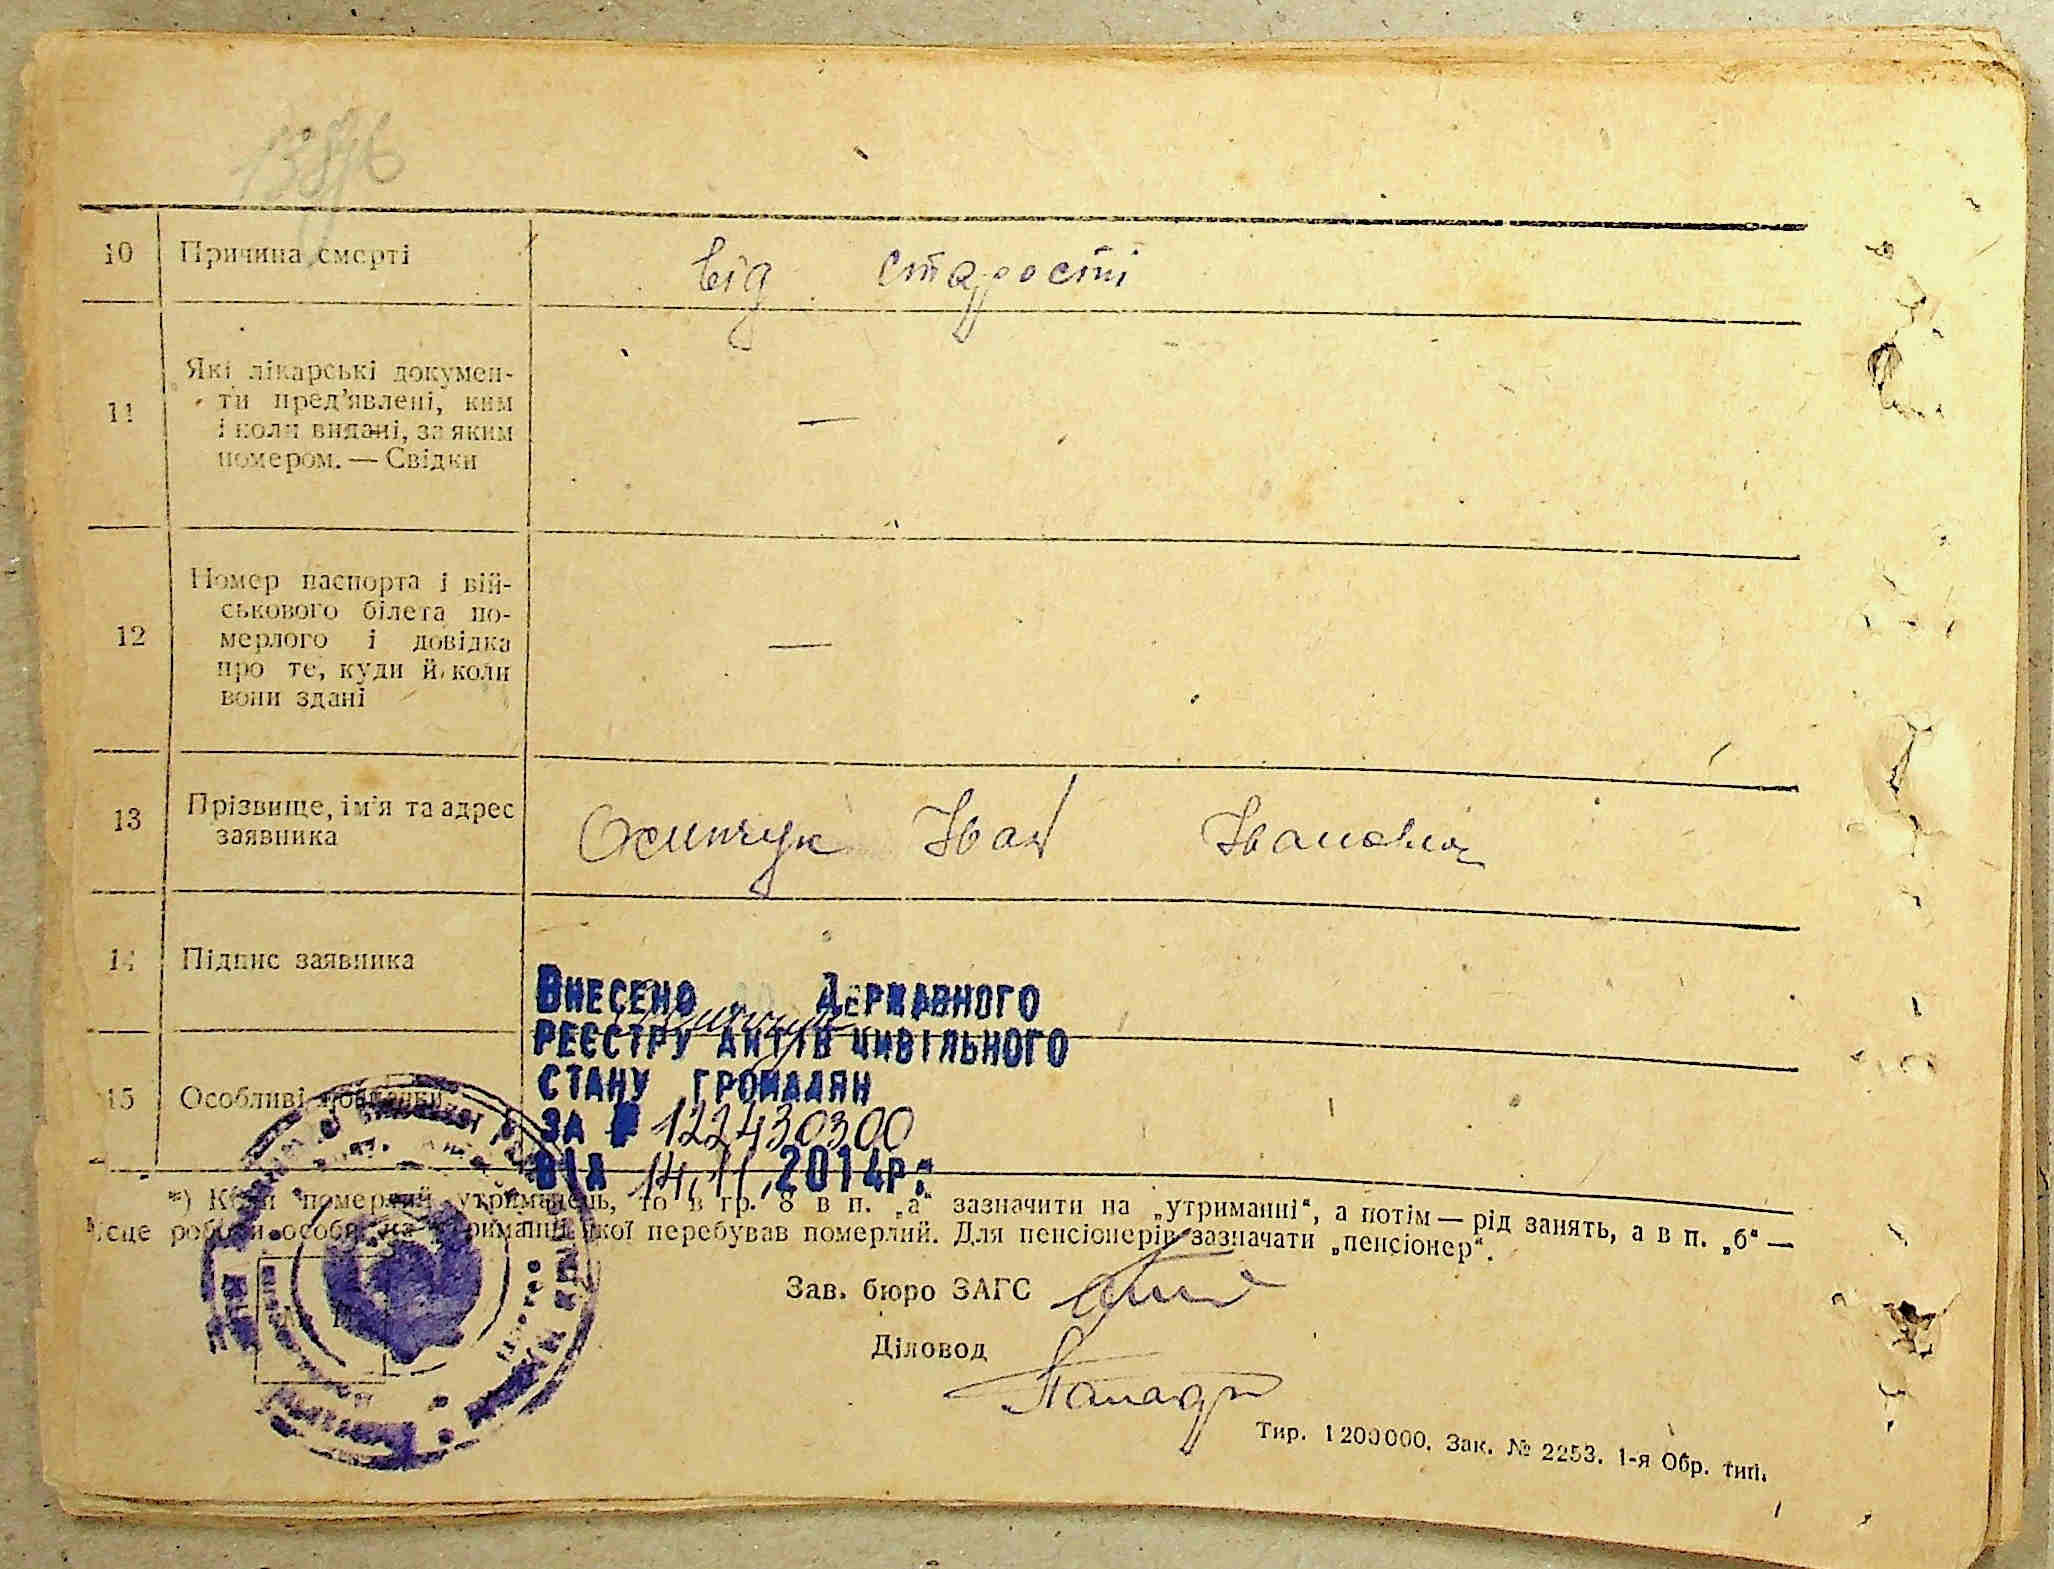 10 Причина смерті від старості
11 Які лікарські докумен-
ти пред'явлені, ким
і коли видані, за яким
номером. — Свідки —
12 Номер паспорта і вій-
ськового білета по-
мерлого і довідка
про те, куди й коли
вони здані —
13 Прізвище, ім'я та адрес
заявника Іван Іванович
14 Підпис заявника
Внесено до Державного
реєстру актів цивільного
стану громадян
за № 122430300
від 14.11.2014р.
15 Особливі
*) Коли померлий утриманець, то в гр. 8 в п. „а“ зазначити на „утриманні“, а потім — рід занять, а в п. „б“ —
місце роботи особи, на утриманні якої перебував померлий. Для пенсіонерів зазначати „пенсіонер“.
Зав. бюро ЗАГС
Діловод
Тир. 1200000. Зак. № 2253. 1-я Обр. тип.